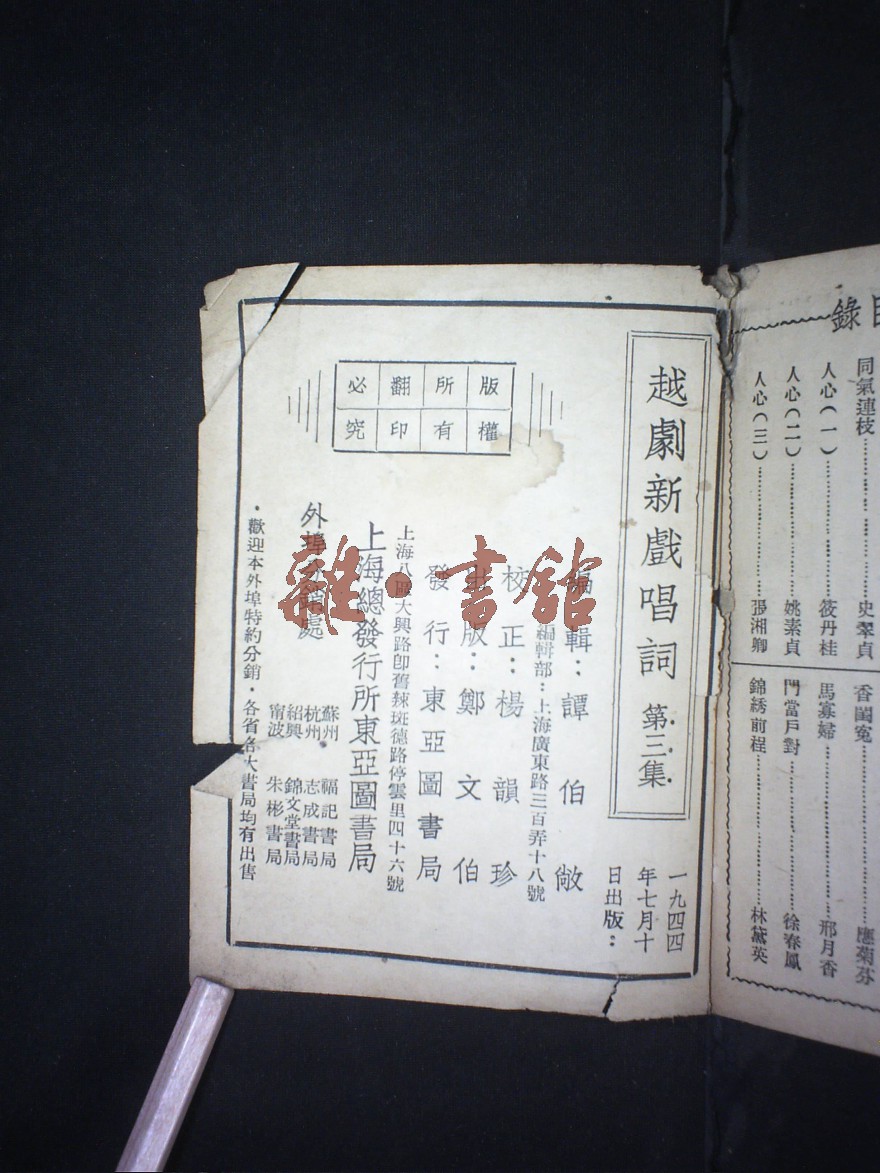 目錄
同氣連枝⋯⋯史翠貞
人心(一)⋯⋯筱丹桂
人心(二)⋯⋯姚素貞
人心(三)⋯⋯張湘卿
香閨寃⋯⋯應菊芬
馬寡婦⋯⋯邢月香
門當戶對⋯⋯徐春鳳
錦綉前程⋯⋯林黛英
越劇新戲唱詞 第三集
一九四四年七月十日出版：
編輯：譚伯敞
編輯部：上海廣東路三百弄十八號
校正：楊韻珍
出版：鄭文伯
發行：東亞圖書局
上海八區大興路卽舊辣斑德路停雲里四十六號
上海總發行所東亞圖書局
外埠分銷處
蘇州 福記書局
杭州 志成書局
紹興 錦文堂書局
甯波 朱彬書局
·歡迎本外埠特約分銷·各省各大書局均有出售
版權所有翻印必究
雜·書館